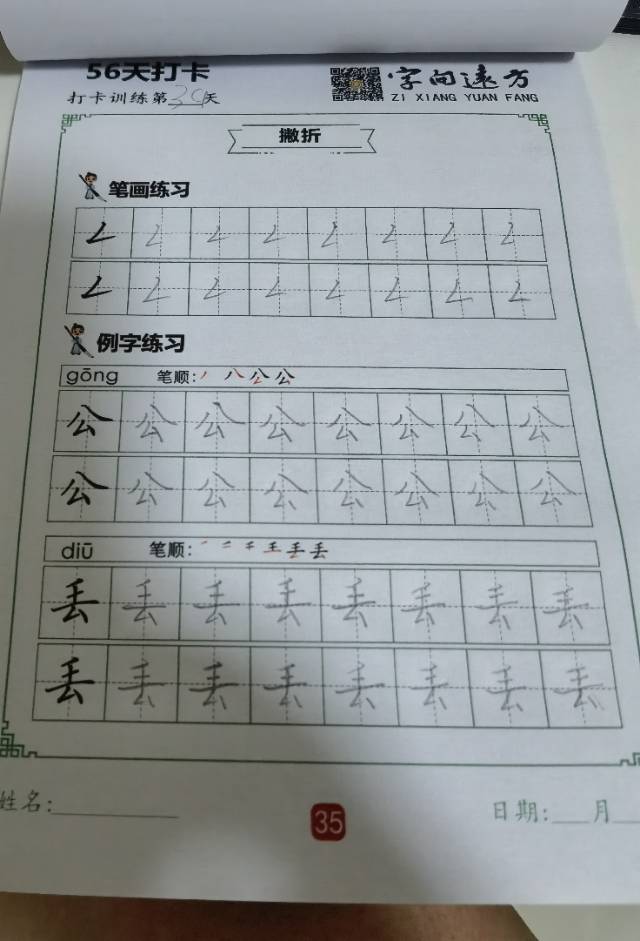 56天打卡
打卡训练第 天
字间速方
ZI XIANG YUAN FANG
撇折
笔画练习
例字练习
gōng 笔顺:丿 八 公 公
公 公 公 公 公 公 公 公
公 公 公 公 公 公 公 公
diū 笔顺:
丢 丢 丢 丢 丢 丢 丢 丢
丢 丢 丢 丢 丢 丢 丢 丢
姓名:
35
日期: 月